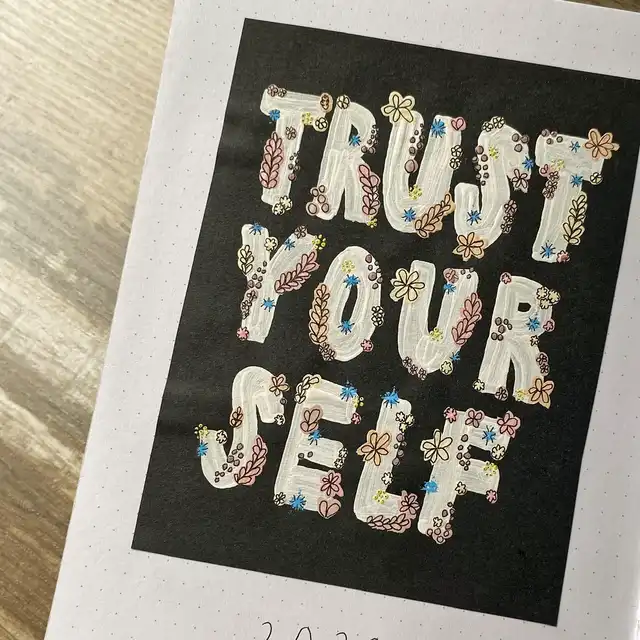 TRUST
YOUR
SELF